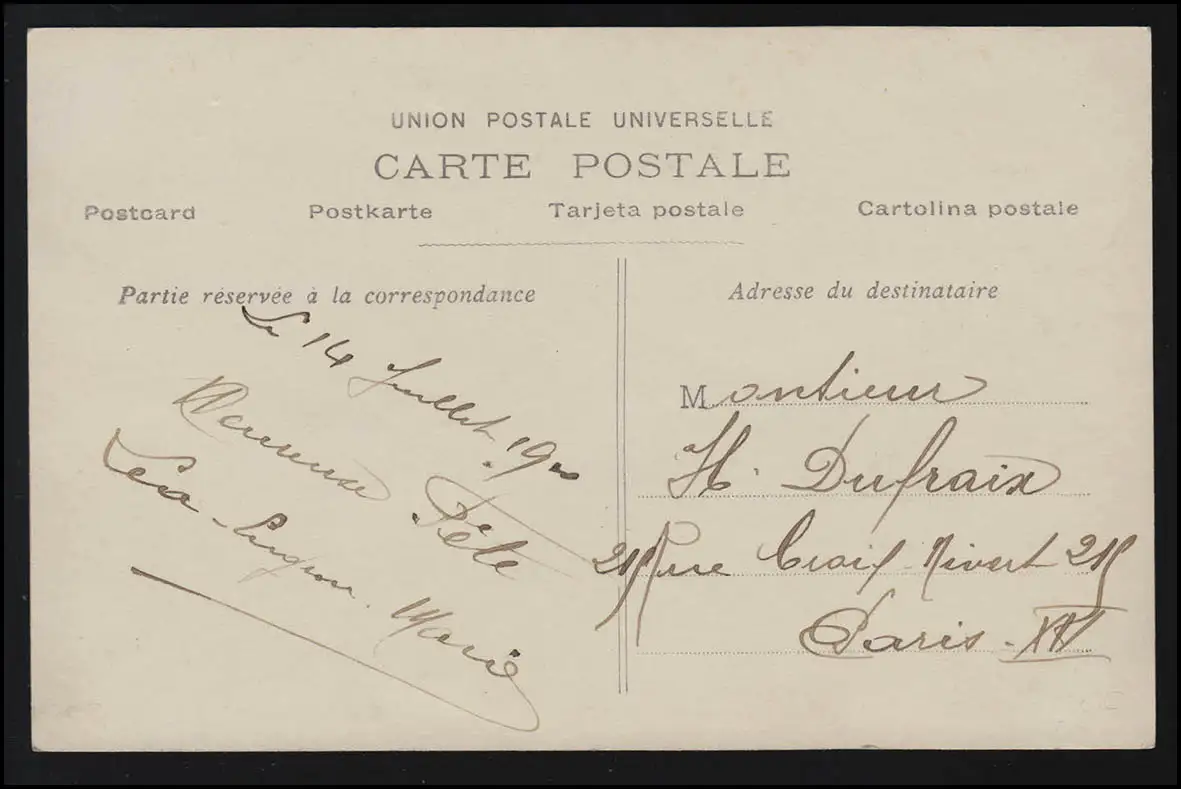 UNION POSTALE UNIVERSELLE
CARTE POSTALE
Postcard Postkarte Tarjeta postale Cartolina postale
Partie réservée à la correspondance
Le 14 Juillet 19
Heureuse Fête
Marie
Adresse du destinataire
Monsieur
H. Dufraix
Rue Croix Nivert
Paris